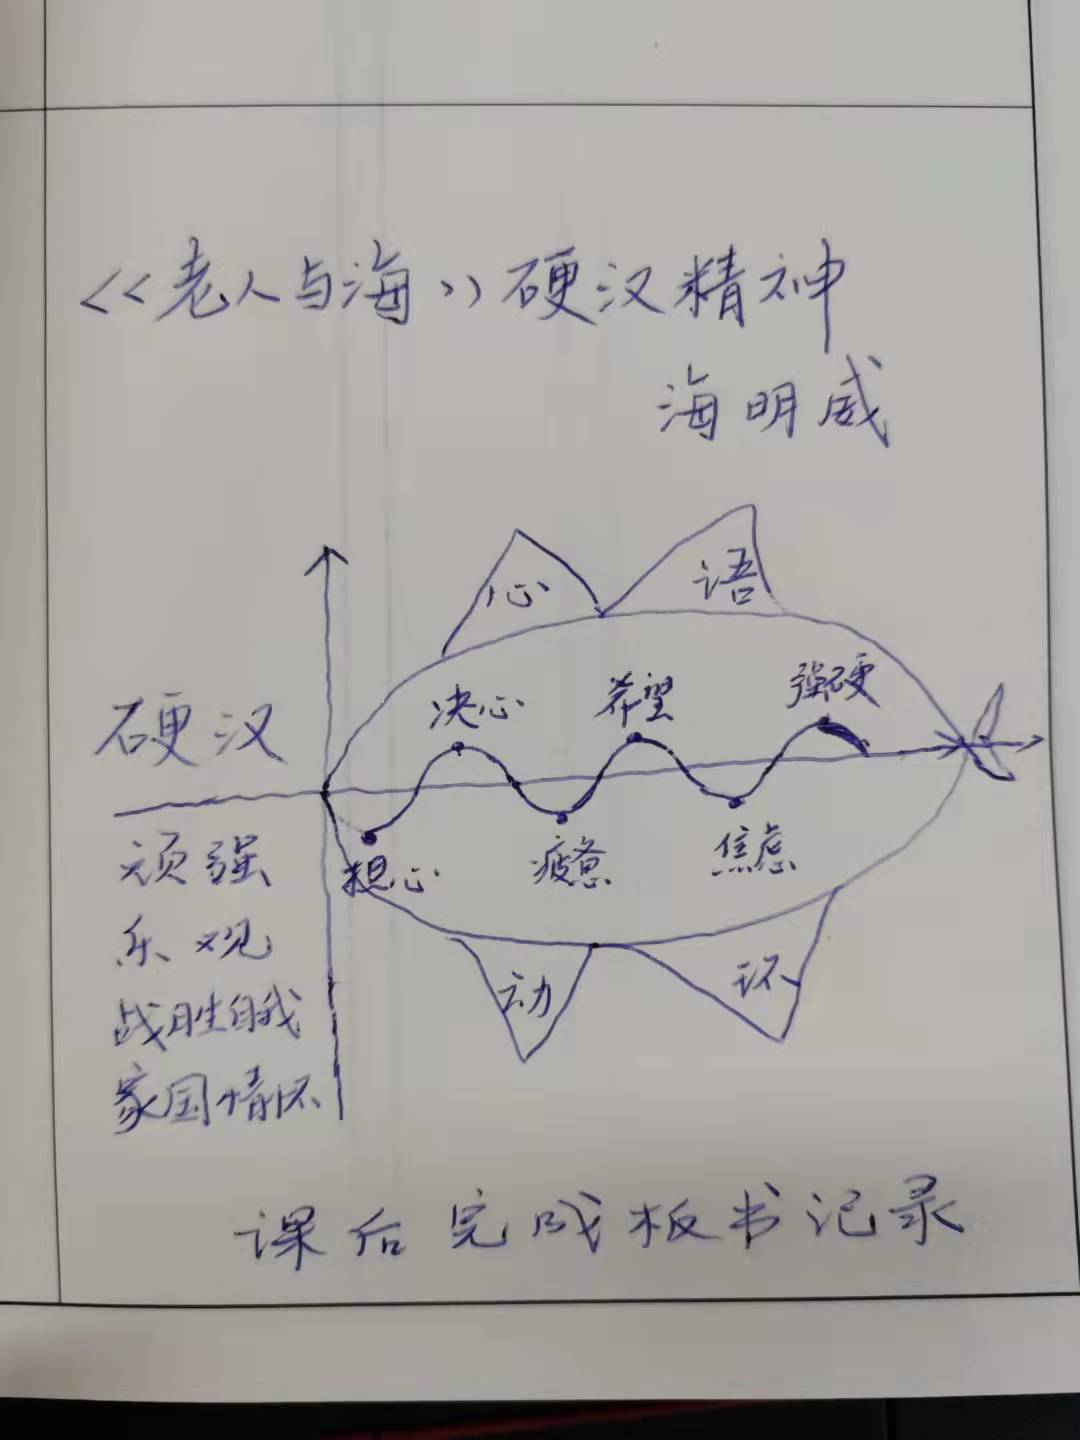 <<老人与海>>硬汉精神
海明威
心 语
决心 希望 强硬
硬汉
担心 疲惫 焦虑
顽强
乐观
战胜自我
家国情怀
动 环
课后完成板书记录